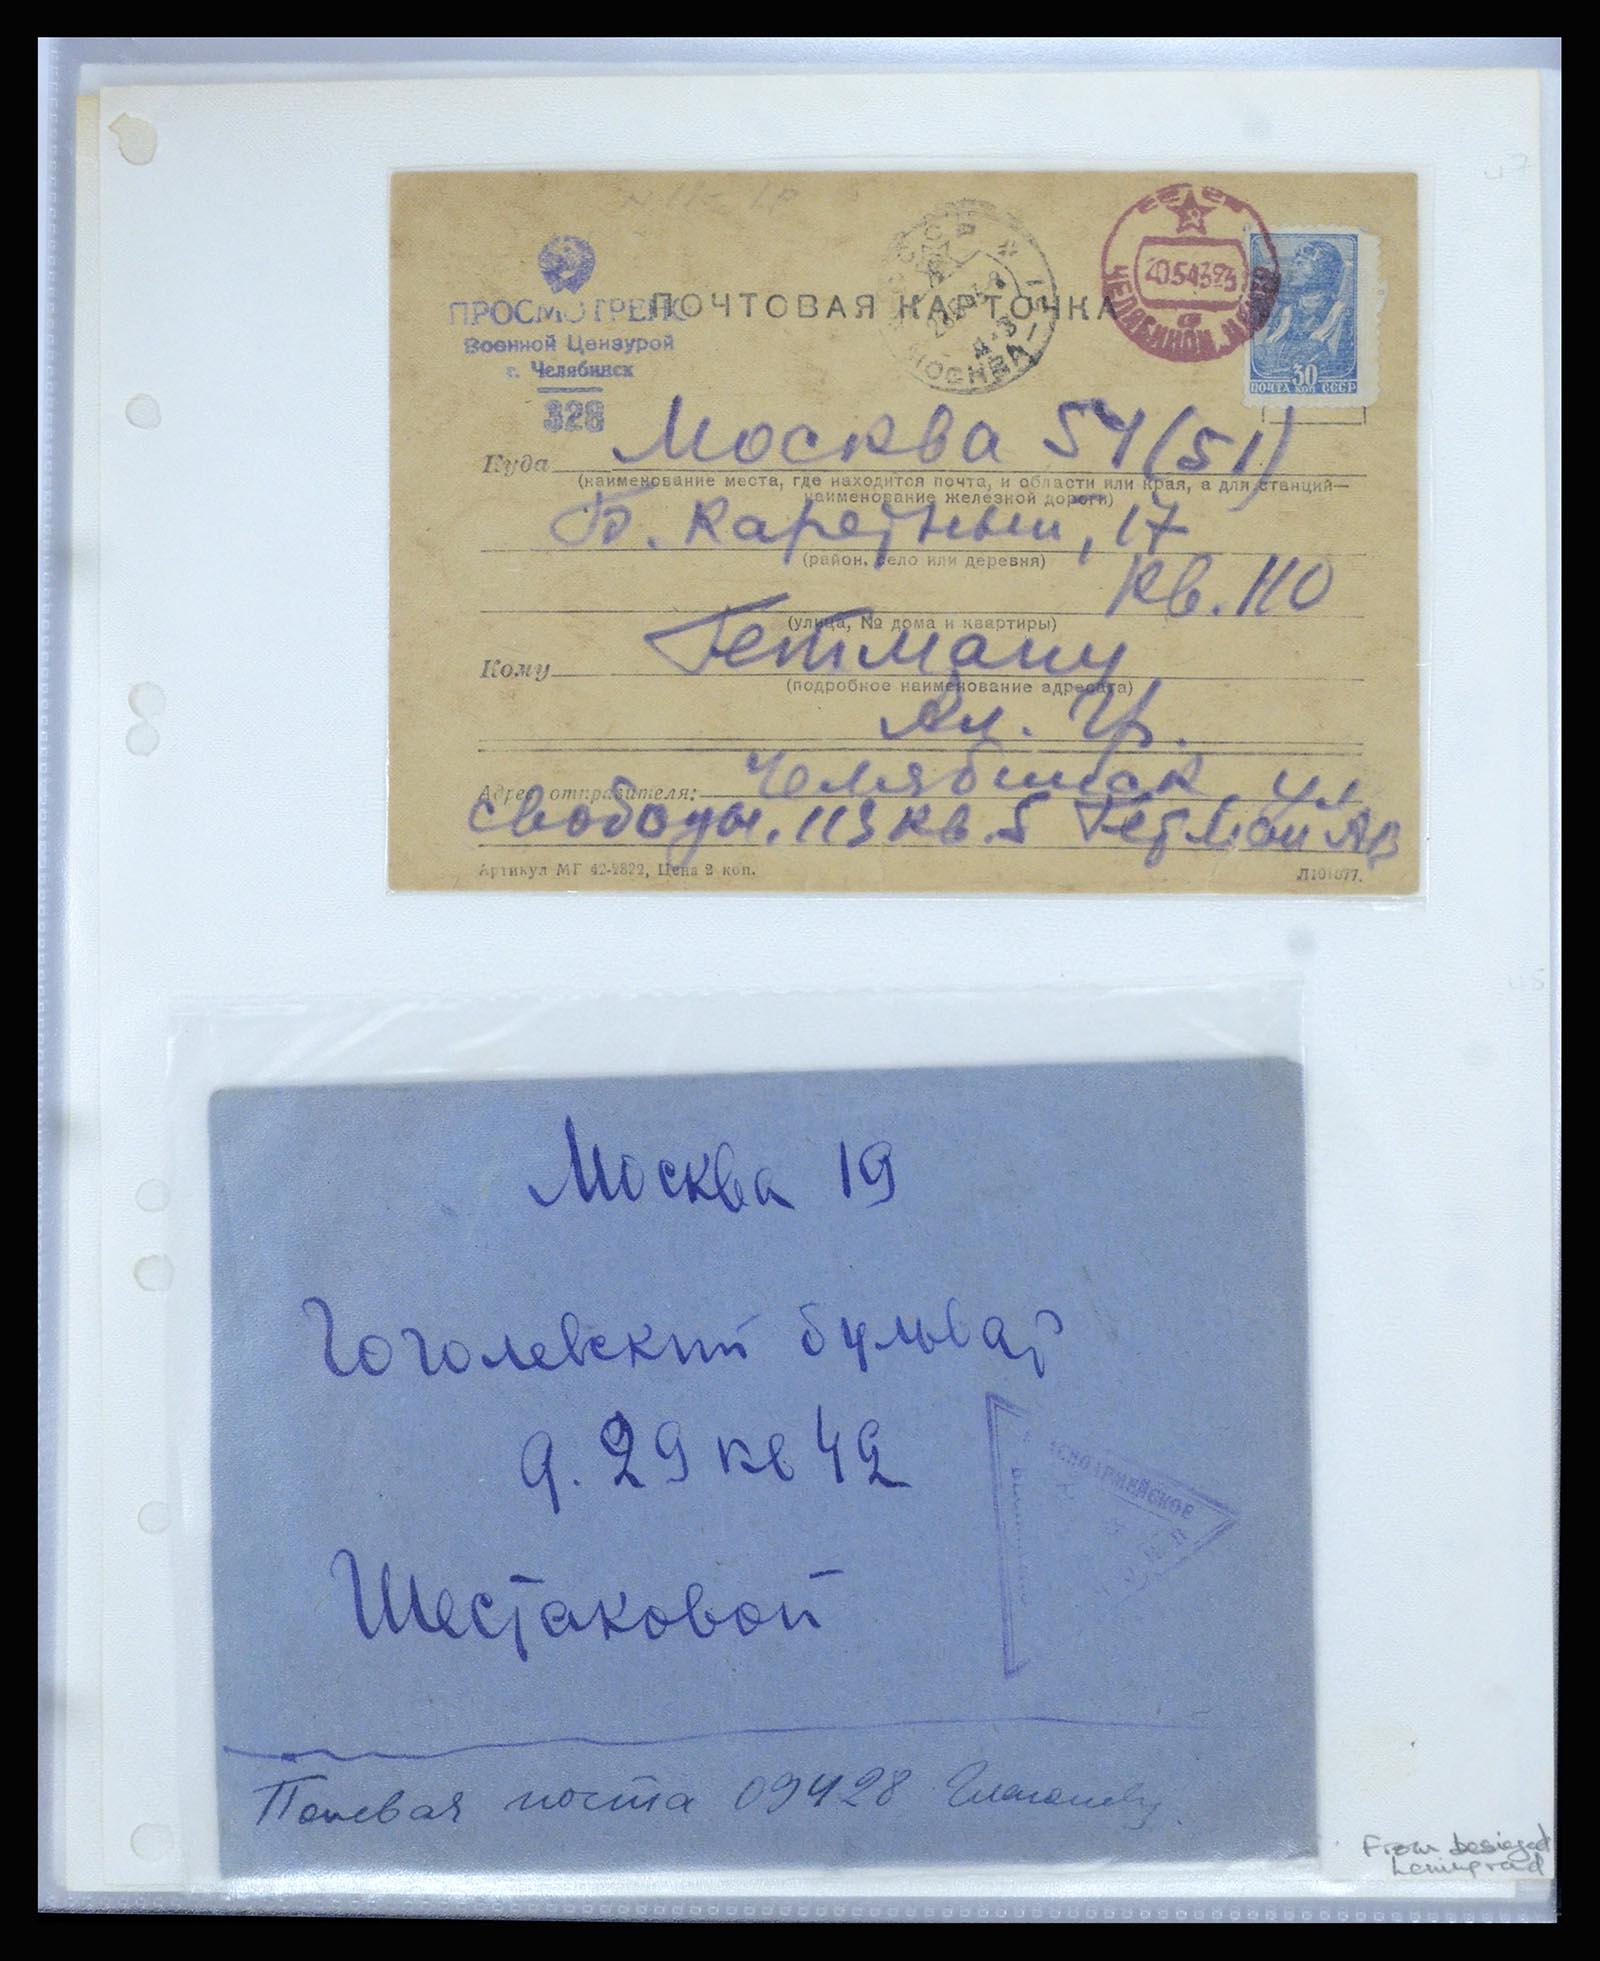 ПРОСМОТРЕНО
Военной Цензурой
г. Челябинск
328
ПОЧТОВАЯ КАРТОЧКА
МОСКВА
20.5.43.23
ЧЕЛЯБИНСК
30
ПОЧТА КОП СССР
Куда Москва 54 (51)
(наименование места, где находится почта, и области или края, а для станций—
наименование железной дороги)
Б. Каретный, 17
(район, село или деревня)
кв. 110
(улица, № дома и квартиры)
Кому Гетману
(подробное наименование адресата)
Ал. Гр.
Адрес отправителя: Челябинск ул
свободы. 113 кв. 5 Гетман АВ
Артикул МГ 42-2822, Цена 2 коп.
Л101077.
Москва 19
Гоголевский бульвар
д. 29 кв 42
Шестаковой
Полевая почта 09428
From besieged
Leningrad